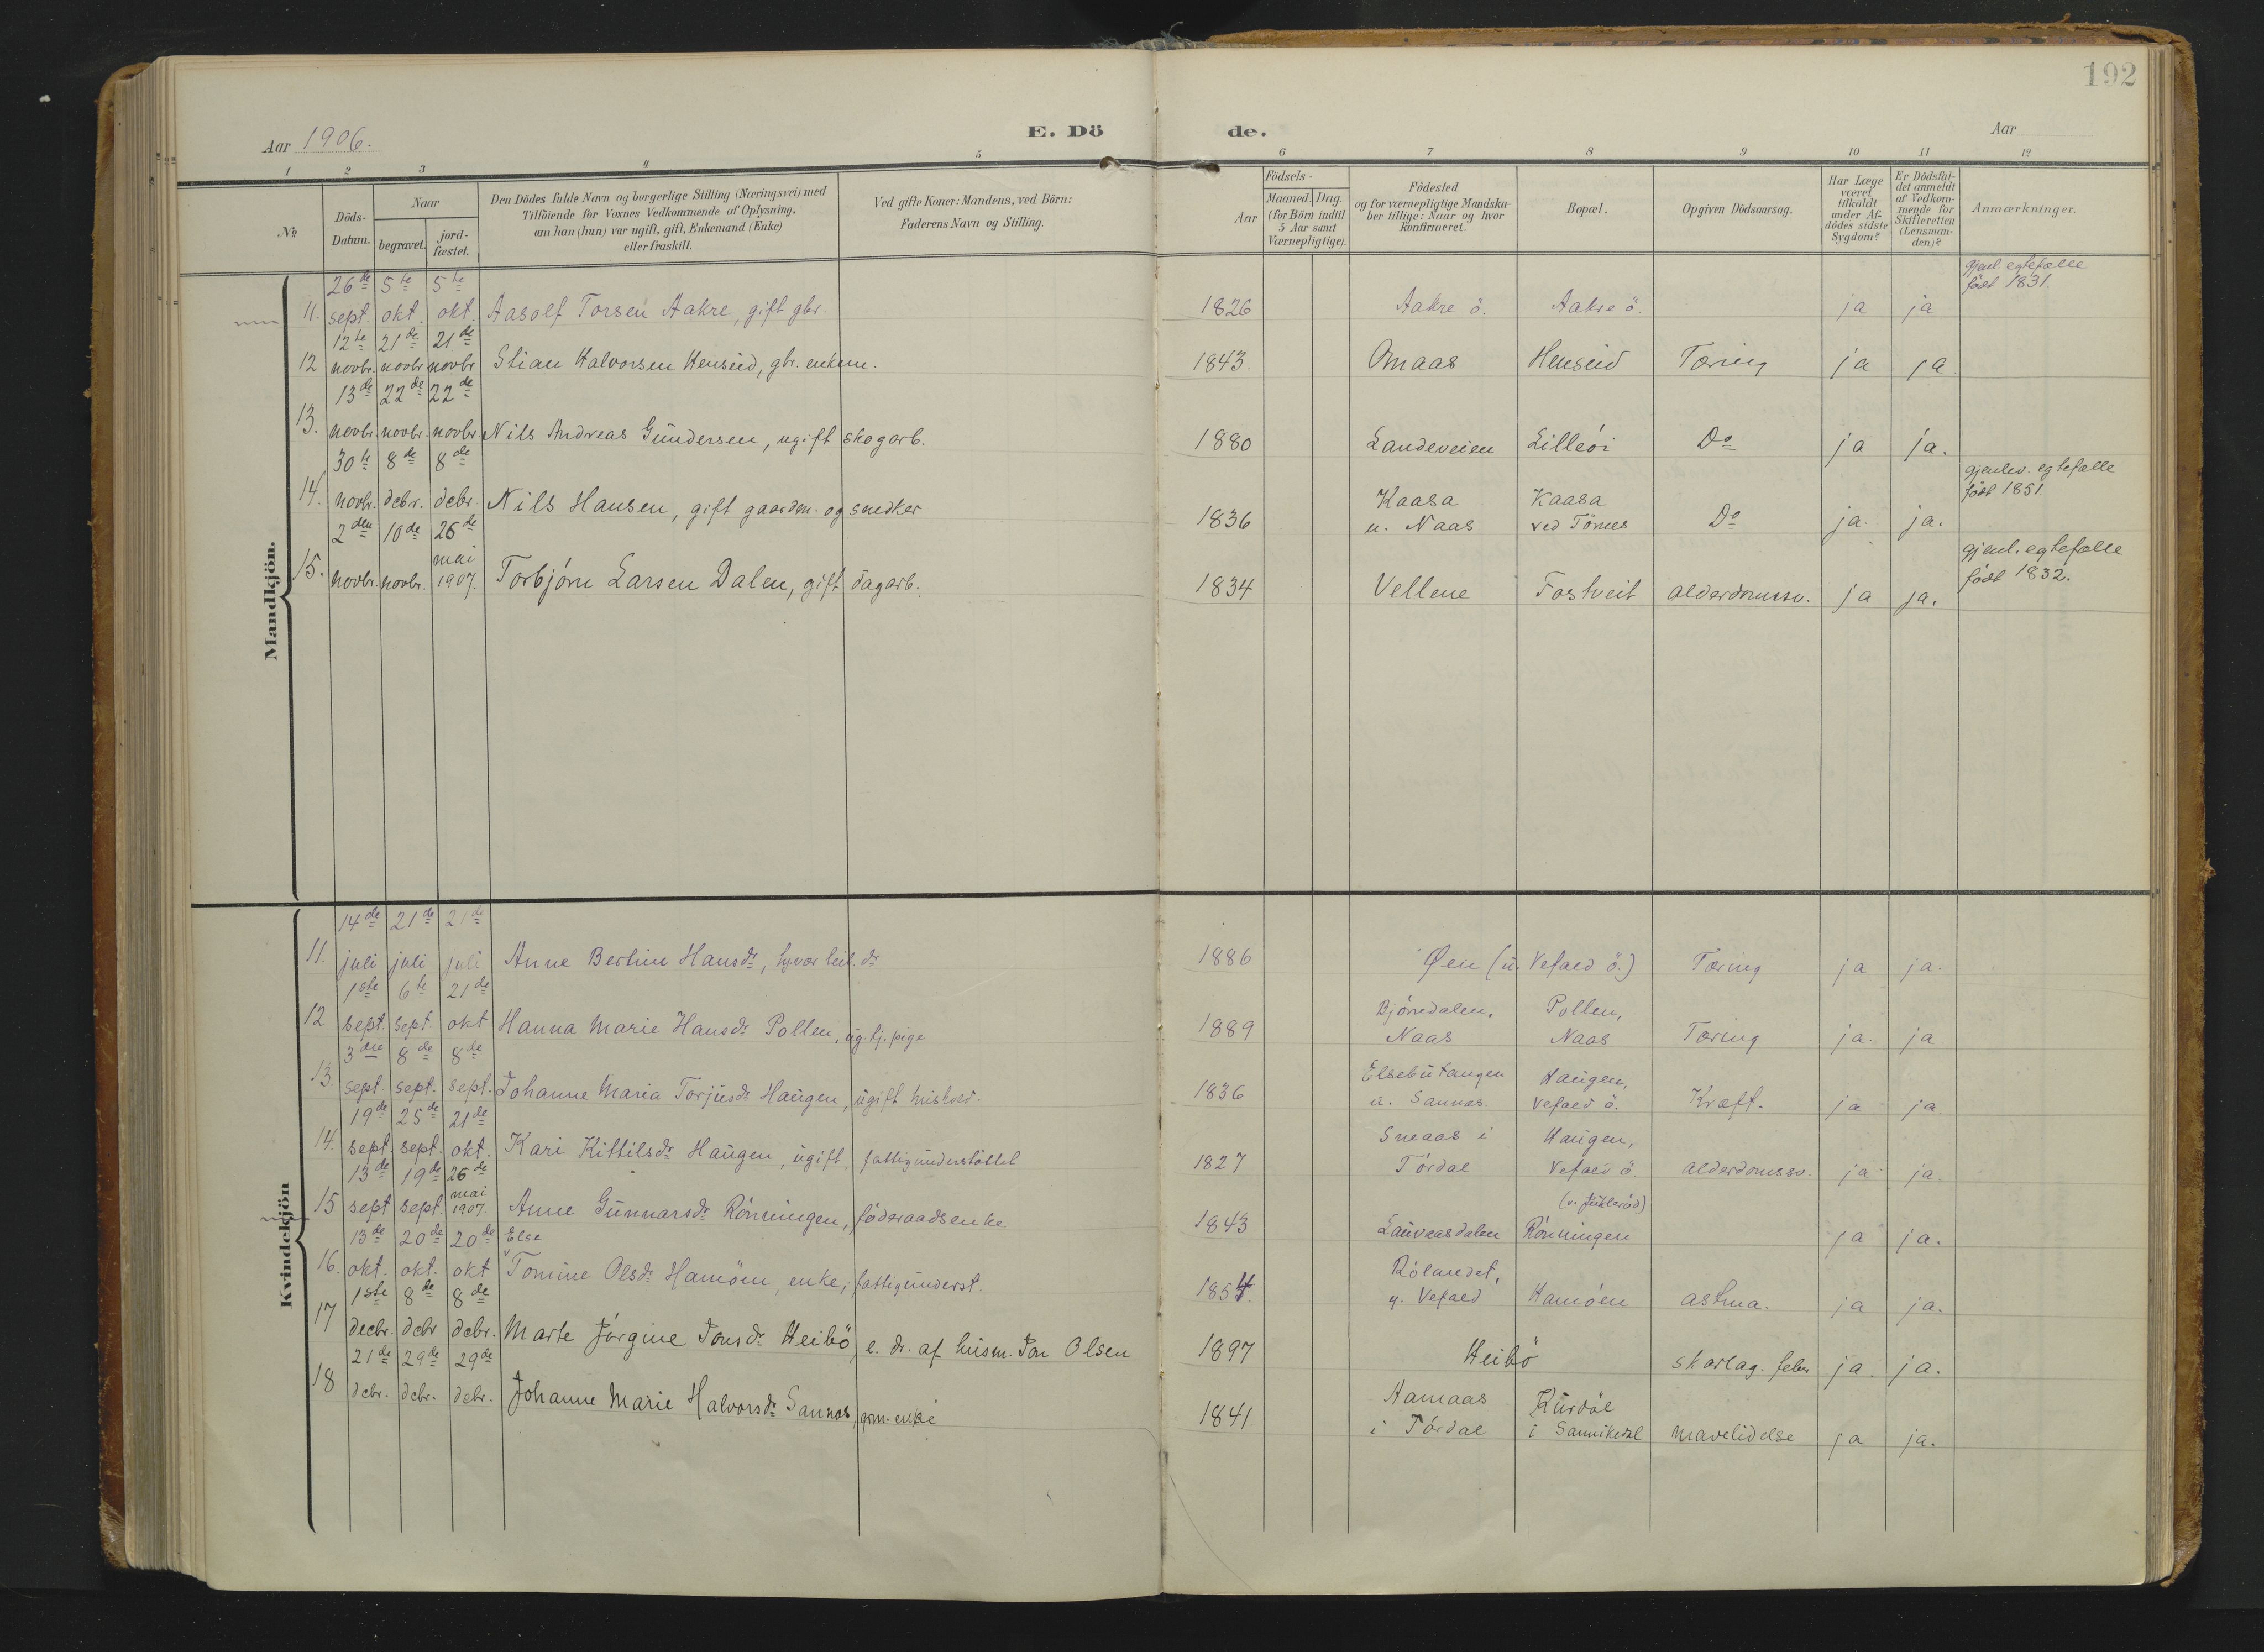 192
Aar 1906.
E. Döde.
Aar
1 2 3 4 5 6 7 8 9 10 11 12
No
Döds-Datum.
Naar
begravet.
jordfæstet.
Den Dödes fulde Navn og borgerlige Stilling (Næringsvei) med
Tilföiende for Voxnes Vedkommende af Oplysning,
om han (hun) var ugift, gift, Enkemand (Enke)
eller fraskilt.
Ved gifte Koner: Mandens, ved Börn:
Faderens Navn og Stilling.
Födsels-
Aar
Maaned. Dag.
(for Börn indtil
5 Aar samt
Værnepligtige).
Födested
og for værnepligtige Mandskaber tillige: Naar og hvor
konfirmeret.
Bopæl.
Opgiven Dödsaarsag.
Har Læge
været
tilkaldt
under Afdödes sidste
Sygdom?
Er Dödsfaldet anmeldt
af Vedkommende for
Skifteretten
(Lensmanden)?
Anmærkninger.
Mandkjön.
11. 26de sept. 5te okt. 5te okt. Aasolf Torsen Aakre, gift gbr. 1826 Aakre ö. Aakre ö. ja ja gjenl. egtefælle födt 1831.
12 12te novbr. 21de novbr 21de novbr Stian Halvorsen Henseid, gbr. enkem. 1843. Omaas Henseid Tæring ja ja
13. 13de novbr. 22de novbr. 22de novbr. Nils Andreas Gundersen, ugift skogarb. 1880 Landeveien Lilleöi Do ja ja.
14. 30te novbr. 8de debr. 8de debr. Nils Hansen, gift gaardm. og snedker 1836 Kaasa u. Naas Kaasa ved Tömes Do ja. ja. gjenlev. egtefælle födt 1851.
15. 2den novbr. 10de novbr. 26de mai 1907. Torbjörn Larsen Dalen, gift dagarb. 1834 Vellene Fostveit alderdomssv. ja ja. gjenl. egtefælle födt 1832.
Kvindekjön
11. 14de juli 21de juli 21de juli Anne Bertine Hansdr, dr 1886 Øen (u. Vefald ö.) Tæring ja ja.
12 1ste sept. 6te sept. 21de okt Hanna Marie Hansdr Pollen, ug. tj. pige 1889 Bjönndalen, Naas Pollen, Naas Tæring ja. ja
13. 3die sept. 8de sept. 8de sept. Johanne Maria Torjusdr Haugen, ugift 1836 Elsebutangen u. Sannæs. Haugen, Vefald ö. Kræft. ja ja
14. 19de sept. 25de sept. 21de okt. Kari Kittilsdr Haugen, ugift, fattigunderstöttet 1827 Sneaas i Tördal Haugen, Vefald ö alderdomssv. ja ja.
15 13de sept 19de sept. 26de mai 1907. Anne Gunnarsdr Rönningen, föderaadsenke 1843 Lauvaasdalen Rönningen ja ja.
16. 13de okt. 20de okt. 20de okt Else Tomine Olsdr Hamöen, enke, fattigunderst. 1854. Rölandet, y. Vefald Hamöen astma. ja ja.
17 1ste decbr. 8de debr 8de debr. Marte Jörgine Jonsdr Heibö, e. dr. af husm. Jon Olsen 1897 Heibö skarlag. feber ja. ja.
18 21de debr. 29de debr. 29de debr. Johanne Marie Halvorsdr Sannæs, grm. enke 1841 Aamaas i Tördal Kurdöl i Sannikedal mavelidelse ja ja.